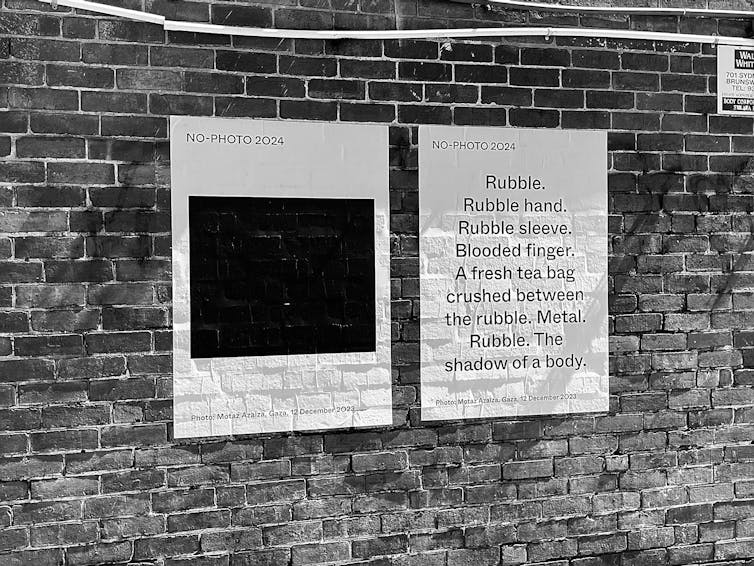 NO-PHOTO 2024
Photo: Motaz Azaiza, Gaza, 12 December 2023
NO-PHOTO 2024
Rubble.
Rubble hand.
Rubble sleeve.
Blooded finger.
A fresh tea bag
crushed between
the rubble. Metal.
Rubble. The
shadow of a body.
Photo: Motaz Azaiza, Gaza, 12 December 2023
701 SYD
BRUNSW
TEL: 9